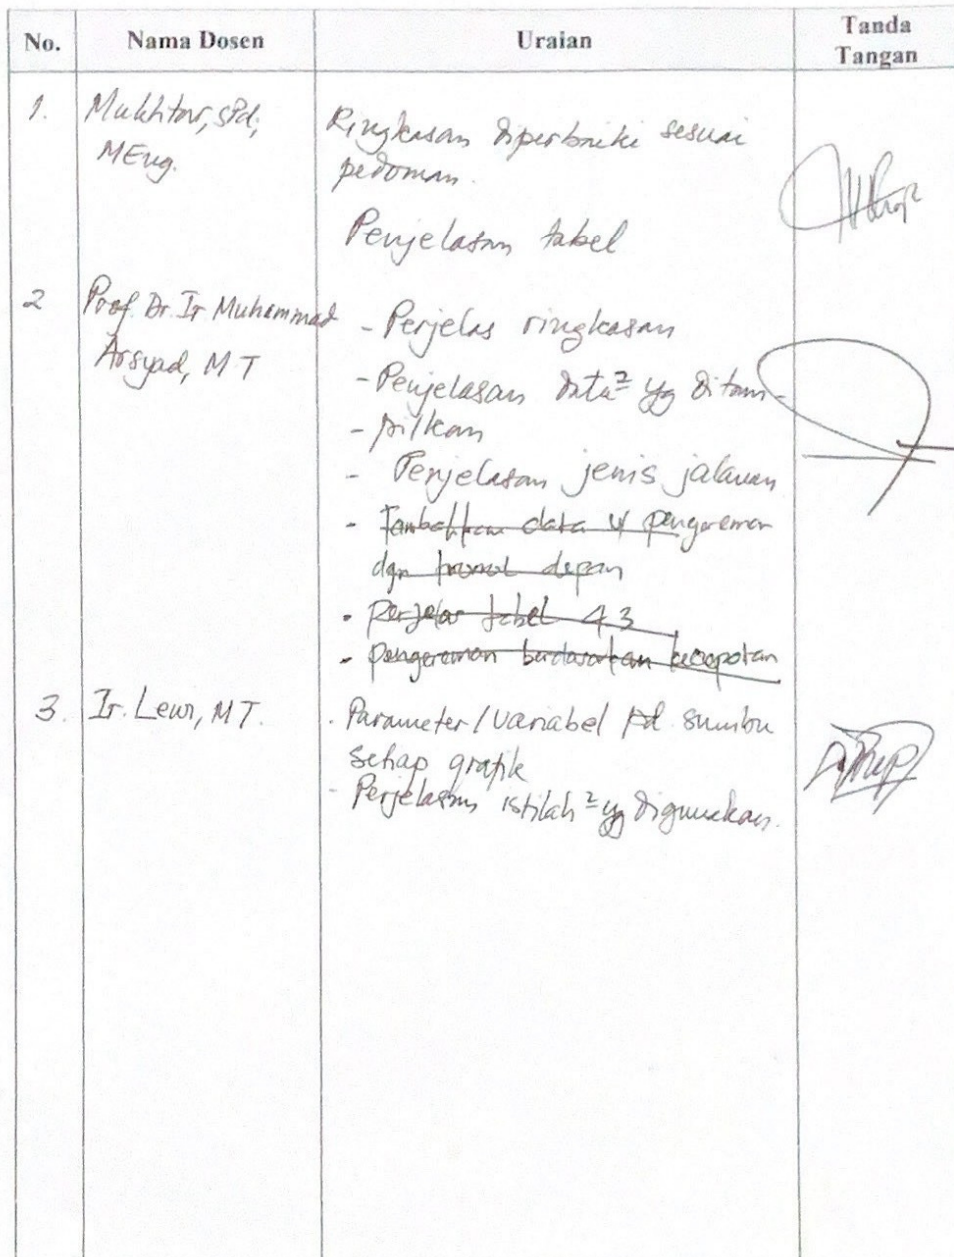 No. Nama Dosen Uraian Tanda
Tangan
1. Mukhtar, SPd, Ringkasan diperbaiki sesuai
MEng. pedoman.
Penjelasan tabel
2 Prof. Dr. Ir. Muhammad - Perjelas ringkasan
Arsyad, MT - Penjelasan data² yg ditam-
- pilkan
- Penjelasan jenis jalanan
- Tambahkan data u/ pengereman
dgn tromol depan
• Perjelas tabel 43
• pengereman berdasarkan kecepatan
3. Ir. Lewi, MT. . Parameter/variabel pd sumbu
setiap grafik
- Perjelasan istilah² yg digunakan.